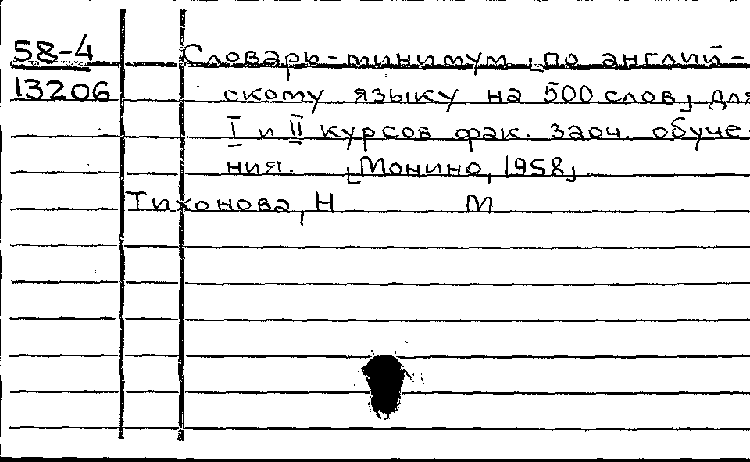 58-4 Словарь-минимум [по англий-
13206 скому языку на 500 слов] для
I и II курсов фак. заоч. обуче-
ния. [Монино, 1958]
Тихонова, Н М